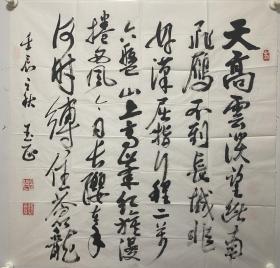 天高雲淡望断南
飛鴈不到長城非
好漢屈指行程二萬
六盤山上高峯红旗漫
捲西風今日长缨在手
何時縛住蒼龍
壬辰之秋